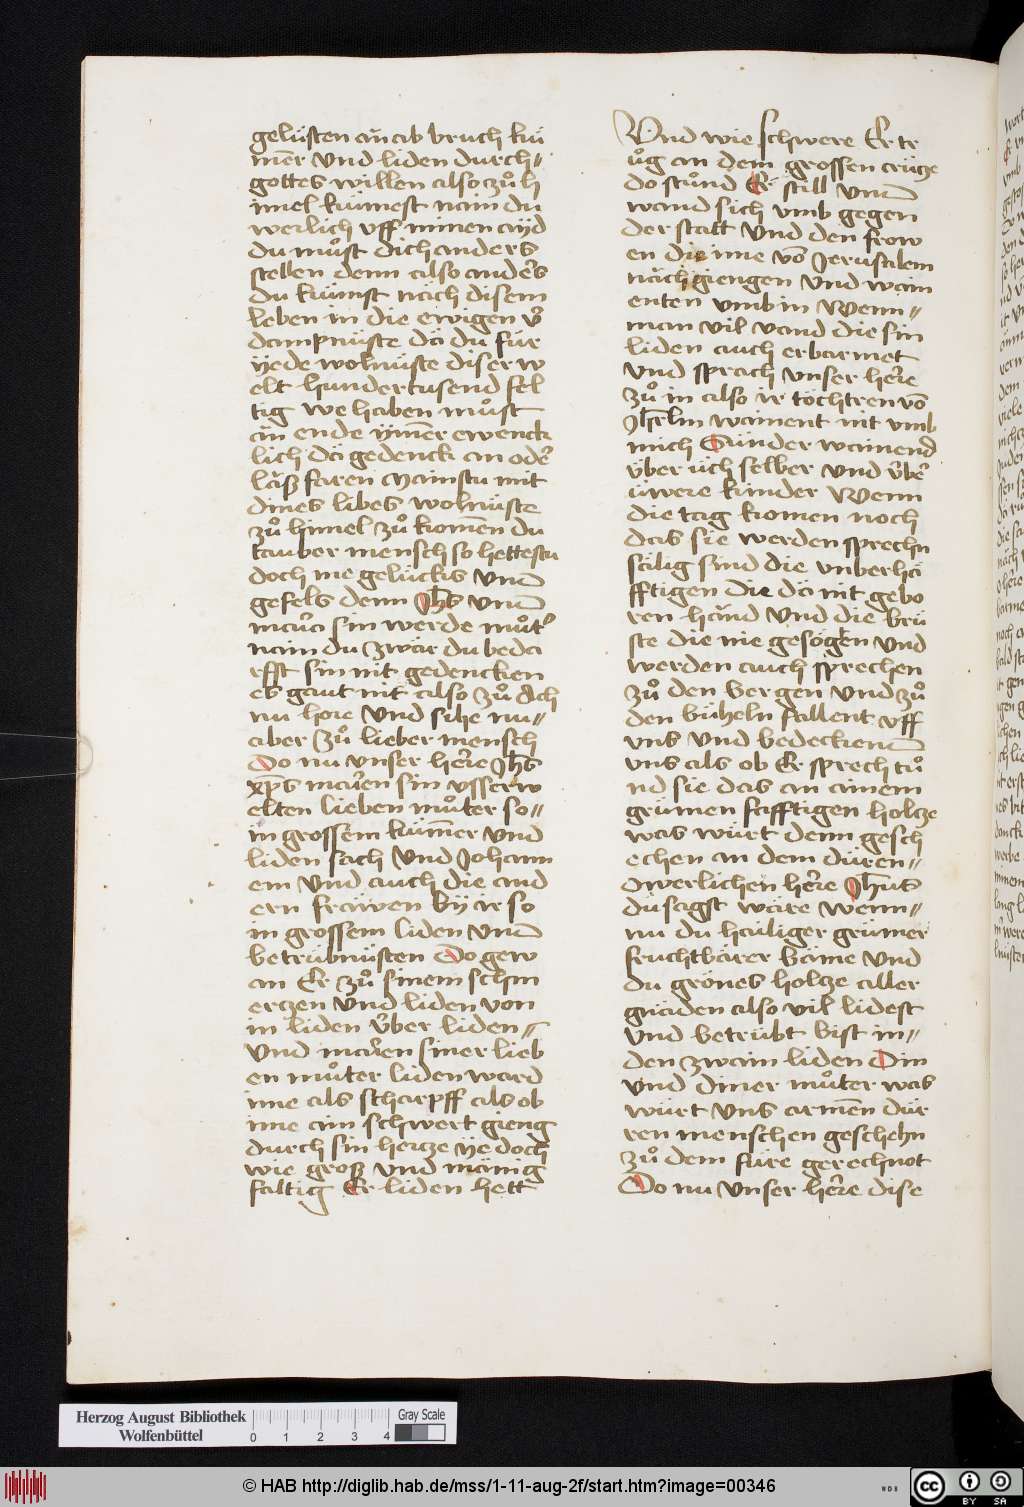 gelüsten ăn ab bruch kü
mer̄ vnd liden durch〃
gottes willen also zuͦ h
imel kümest nain du
werlich vff minen ayd
du muͦst dich anders
stellen denn also anders
du kümst nach disem
leben in die ewigen v̉
dampnüste dä du für
yede wolnüste diser w
elt hundertusend fel
tig we haben muͦst
ăn ende ymer̄ ewenck
lich dä gedenck an oder
läß faren Mainstu mit
dines libes wolnüste
zuͦ himel zuͦ komen̄ du
tauber mensch so hettestu
doch me gelücks vnd
gefels denn Jh̄s vnd
maria sin werde muͦter
nain du zwär du beda
rfft sin nit gedencken
es gaut nit also zuͦ Ach
nu hore vnd sihe nu〃
aber zuͦ lieber mensch
Do nu vnser herre Jh̄s
xp̄s marien sin vsserw
elten lieben muͦter so〃
in grossem kümer̄ vnd
liden sach vnd Johann
em vnd auch die and
ern fräwen by ir so
in grossem liden vnd
betrübnüsten Do gew
an Er zuͦ sinem schm
erczen vnd liden von
in liden v̈ber liden〃
vnd marien siner lieb
en muͦter liden ward
ime als scharpff als ob
ime ain schwert gieng
durch sin hercze ye doch
wie groß vnd mänig
faltig Er liden hett
Vnd wie schwere Er tr
uͦg an dem grossen crücze
do stuͦnd Er still vnd
wand sich vmb gegen
der statt vnd den frow
en die ime vō Jerusalem
nächgiengen vnd wain
enten vmb in Wenn〃
man vil vand die sin
liden auch erbarmet
vnd sprach vnser herre
zuͦ in also ir töchtren vō
Jhr̄lm wainent nit vmb
mich Sünder wainend
v̈ber üch selber vnd v̈ber
üwere kinder Wenn
die tag komen noch
das sie werden sprechn
sälig sind die vnberhä
fftigen die dä nit gebo
ren händ vnd die brü
ste die nie gesögen vnd
werden auch sprechen
zuͦ den bergen vnd zuͦ
den büheln fallent vff
vns vnd bedeckend
vns als ob Er sprech tuͦ
nd sie das an ainem
grünen safftigen holcze
was würt denn gesch
echen an dem düren〃
Owerlichen herre Jh̄us
dü sagst wäre wenn〃
nu du hailiger grüner
fruchtbärer böme vnd
du grönes holcze aller
gnäden also vil lidest
vnd betrübt bist in〃
den zwain liden Din
vnd diner muͦter was
würt vns armen̄ dür
ren menschen geschehn
zuͦ dem füre gerechnot
Do nu vnser herre dise
Herzog August Bibliothek
Wolfenbüttel
0 1 2 3 4
Gray Scale
© HAB http://diglib.hab.de/mss/1-11-aug-2f/start.htm?image=00346
WDB
CC BY SA